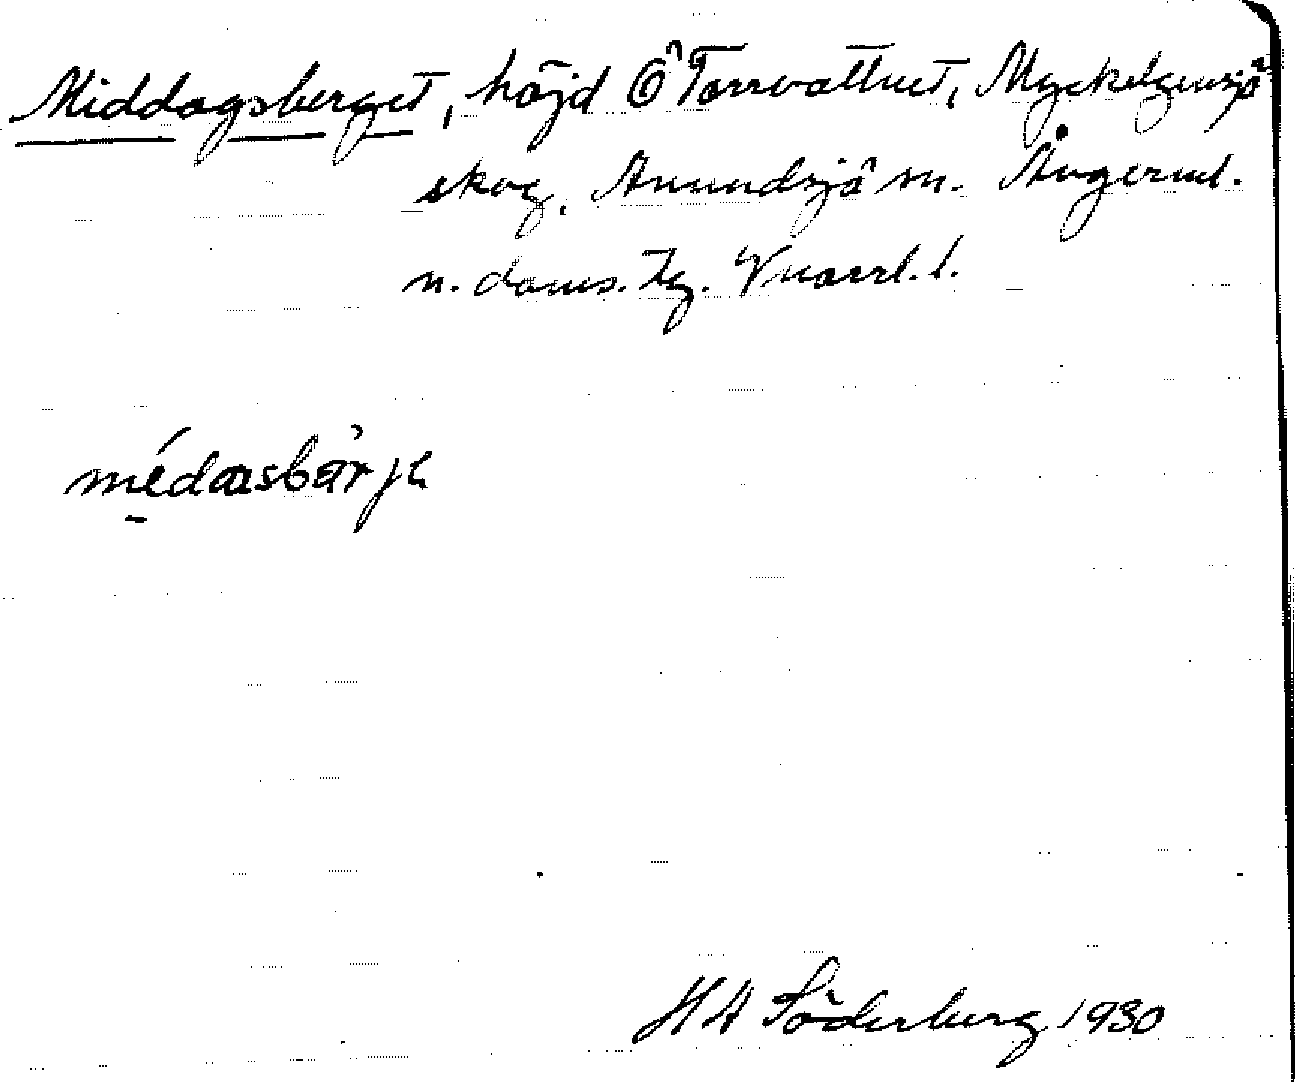 Middagsberget, höjd Ö Torrvattnet, Myckelgensjö
skog, Anundsjö sn. Ångerml.
n. doms. hg. Vnorrl. l.
médasbärje
H A Söderberg 1930